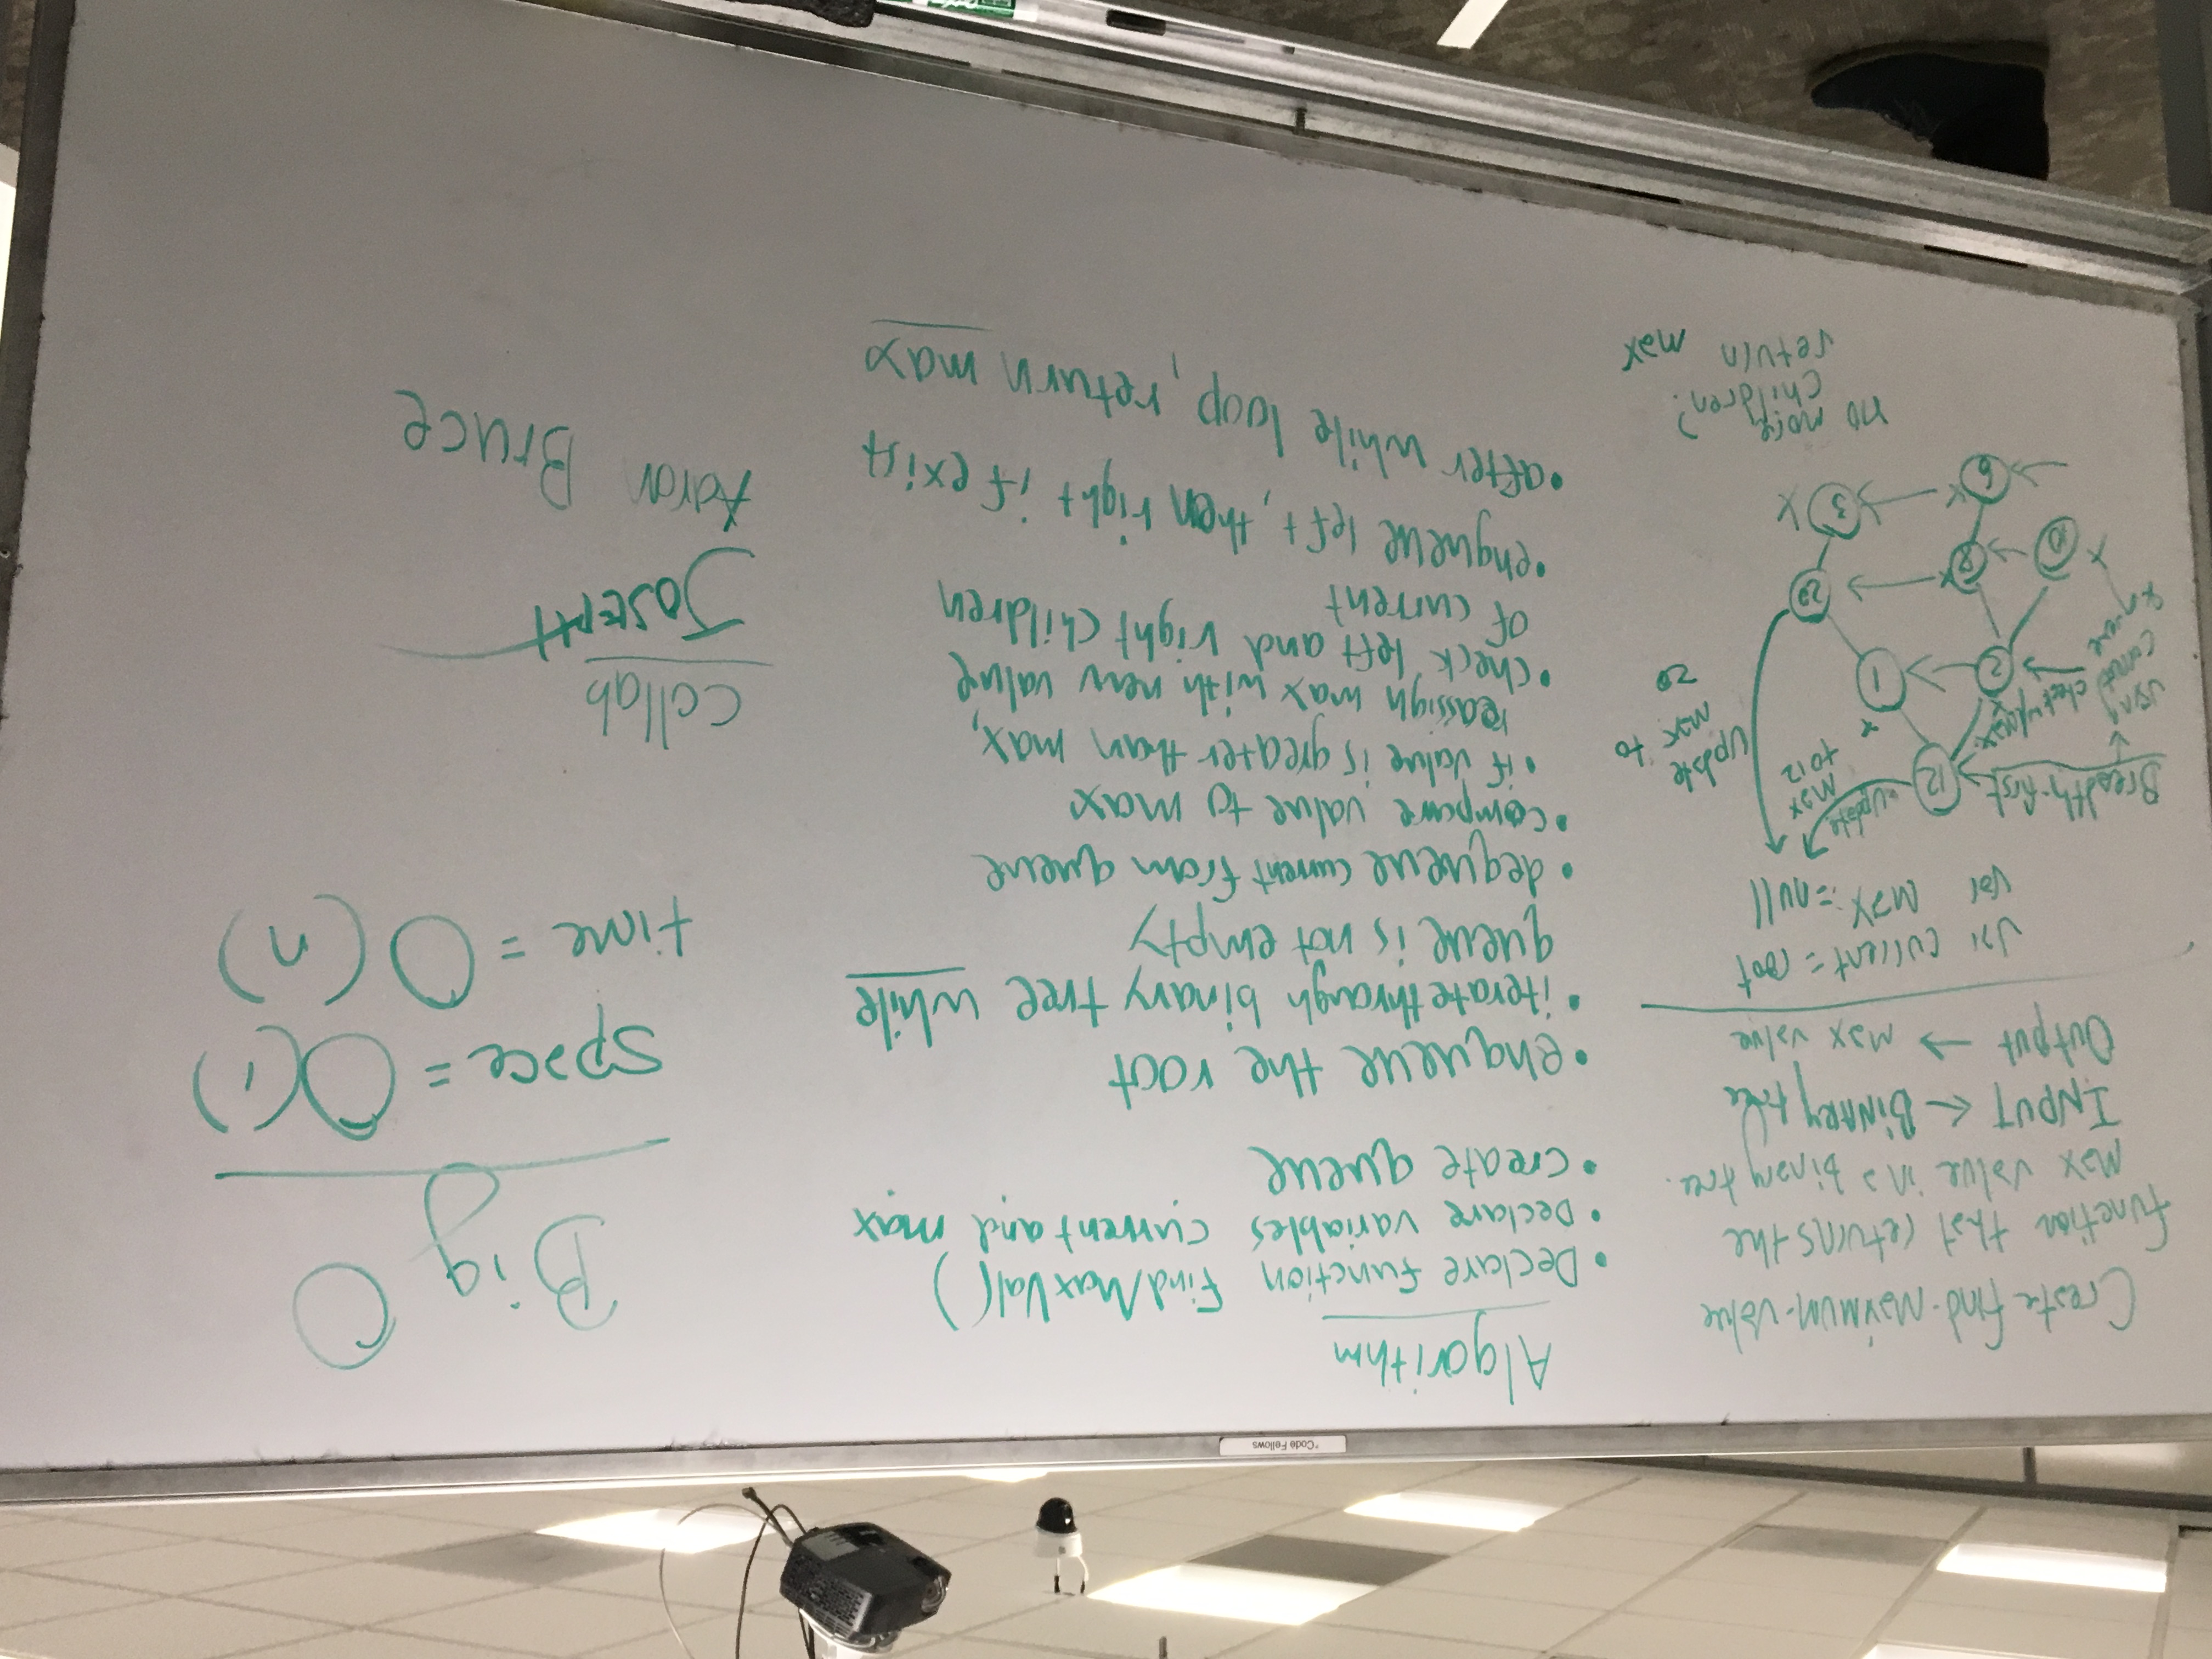 *Code Fellows
Create find-maximum-value
function that returns the
max value in a binary tree.
INPUT ← BiNARY tree
Output → max value
var current = root
var max := null
Breadth-first
12
update
max
to 12
update
max to
20
using
current
& queue
check w/max
x
2
1
x
10
8
x
20
6
x
3
x
no more
children?
return max
Algorithm
• Declare function FindMaxVal()
• Declare variables current and max
• create queue
• enqueue the root
• iterate through binary tree while
queue is not empty
• dequeue current from queue
• compare value to max
• if value is greater than max,
reassign max with new value
• check left and right children
of current
• enqueue left, then right if exist
• after while loop, return max
Big O
space = O(1)
time = O(n)
collab
JOSEPH
Aaron Bruce